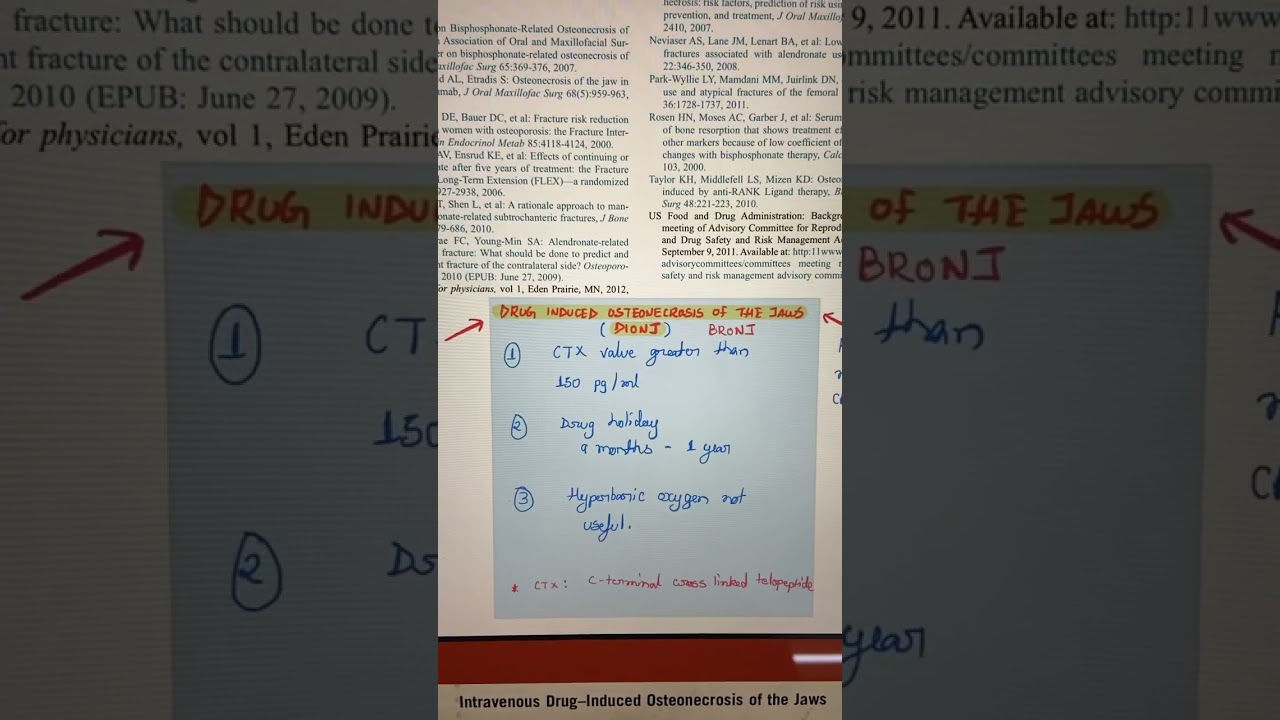 fracture: What should be done to
nt fracture of the contralateral side
2010 (EPUB: June 27, 2009).
for physicians, vol 1, Eden Prairie
DRUG INDU
1 CT
150
2 Ds
on Bisphosphonate-Related Osteonecrosis of
Association of Oral and Maxillofacial Sur-
er on bisphosphonate-related osteonecrosis of
axillofac Surg 65:369-376, 2007.
d AL, Etradis S: Osteonecrosis of the jaw in
mab, J Oral Maxillofac Surg 68(5):959-963,
DE, Bauer DC, et al: Fracture risk reduction
women with osteoporosis: the Fracture Inter-
n Endocrinol Metab 85:4118-4124, 2000.
AV, Ensrud KE, et al: Effects of continuing or
te after five years of treatment: the Fracture
Long-Term Extension (FLEX)—a randomized
927-2938, 2006.
T, Shen L, et al: A rationale approach to man-
onate-related subtrochanteric fractures, J Bone
79-686, 2010.
ae FC, Young-Min SA: Alendronate-related
fracture: What should be done to predict and
nt fracture of the contralateral side? Osteoporo-
2010 (EPUB: June 27, 2009).
for physicians, vol 1, Eden Prairie, MN, 2012,
necrosis: risk factors, prediction of risk usi
prevention, and treatment, J Oral Maxillof
2410, 2007.
Neviaser AS, Lane JM, Lenart BA, et al: Low
fractures associated with alendronate us
22:346-350, 2008.
Park-Wyllie LY, Mamdani MM, Juirlink DN,
use and atypical fractures of the femoral
36:1728-1737, 2011.
Rosen HN, Moses AC, Garber J, et al: Serum
of bone resorption that shows treatment ef
other markers because of low coefficient of
changes with bisphosphonate therapy, Calc
103, 2000.
Taylor KH, Middlefell LS, Mizen KD: Osteo
induced by anti-RANK Ligand therapy, B
Surg 48:221-223, 2010.
US Food and Drug Administration: Backgr
meeting of Advisory Committee for Reprod
and Drug Safety and Risk Management A
September 9, 2011. Available at: http:11www
advisorycommittees/committees meeting
safety and risk management advisory commi
DRUG INDUCED OSTEONECROSIS OF THE JAWS
(DIONJ) BRONJ
1 CTX value greater than
150 pg/ml
2 Drug holiday
9 months - 1 year
3 Hyperbaric oxygen not
useful.
* CTX: C-terminal cross linked telopeptide
Intravenous Drug–Induced Osteonecrosis of the Jaws
9, 2011. Available at: http:11www
mmittees/committees meeting
risk management advisory commi
OF THE JAWS
BRONJ
than
year